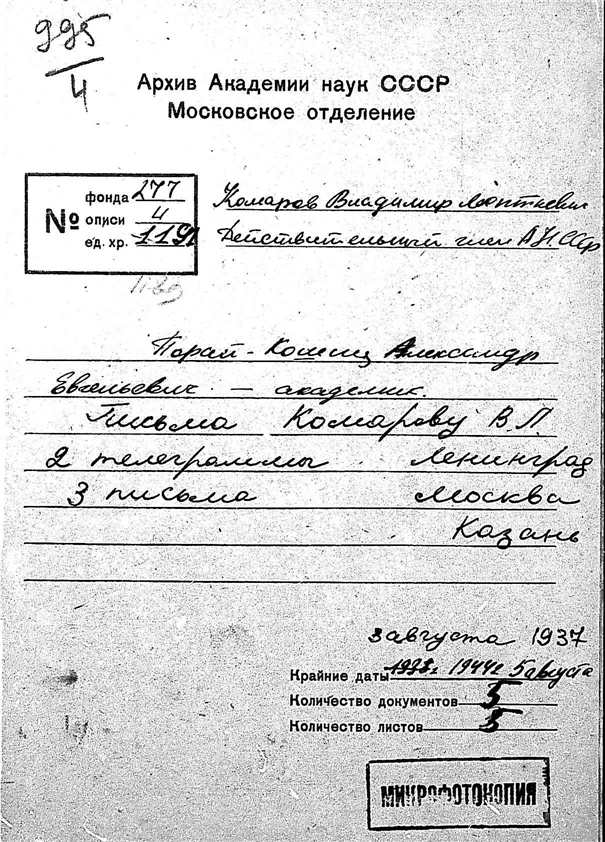 995
4
Архив Академии наук СССР
Московское отделение
№
фонда 277
описи 4
ед. хр. 1191
Комаров Владимир Леонтьевич
Действительный член АН СССР
Порай-Кошиц Александр
Евгеньевич — академик.
Письма Комарову В.Л.
2 телеграммы Ленинград
3 письма Москва
Казань
3 августа 1937
Крайние даты 1944г 5 августа
Количество документов 5
Количество листов 5
МИКРОФОТОКОПИЯ